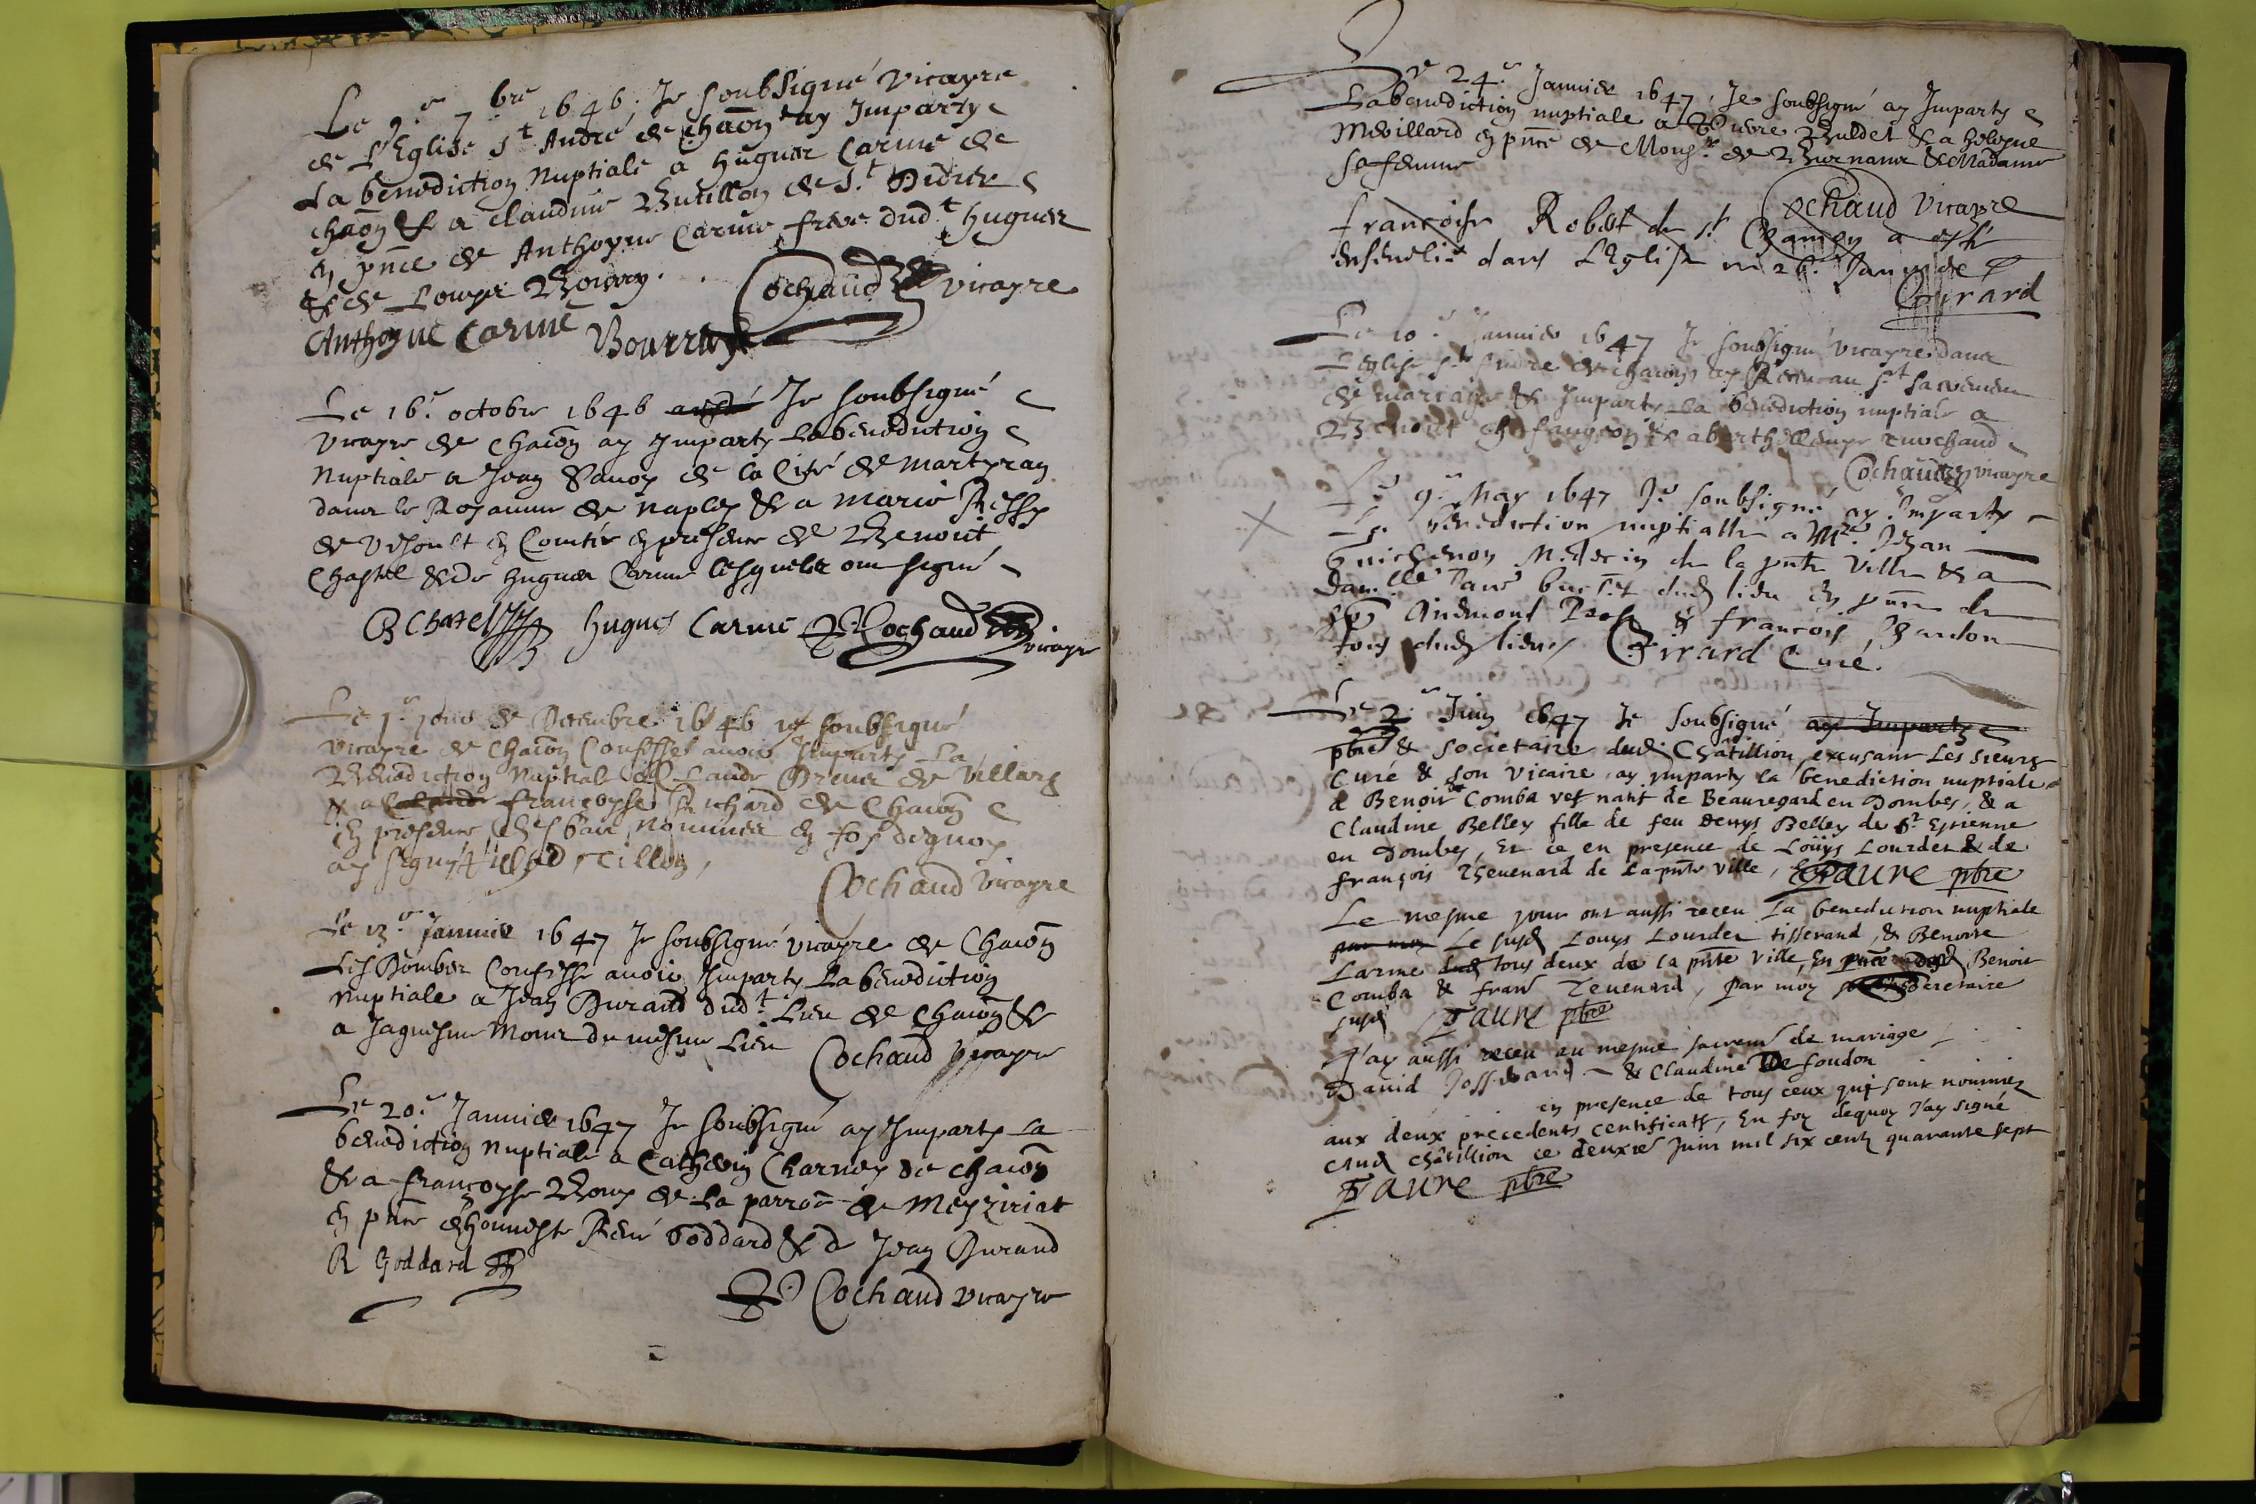 Le 9e 7bre 1646. Je soubsigné vicayre
de L'Eglise St André de Chaōn ay Imparty
La benediction Nuptiale a hugues Carme de
chaōn & a claudine Butillon de St Didier
en pnce de Anthoyne Carme frere dudt hugues
& de Louys Bourry.
Cochaud vicayre
Anthoyne Carme Bourry
Le 16e octobre 1646 Je soubsigné
vicayre de Chaōn ay Imparty La benediction
Nuptiale a Jean de la Cité de Martyran
dans le Royaume de naples & a Marie
de en Comté en presence de Benoit
Chastel & de hugues Carme lesquels ont signé
B Chatel hugues Carme Cochaud vicayre
Le 1er jour de Decembre 1646 Je soubsigné
vicayre de Chaōn Confesse avoir Imparty La
Benediction Nuptiale a Claude de Villars
& a francoyse Richard de Chaōn
En presence des bas nommes en foy dequoy
ay signé
Cochaud vicayre
Le 13e Janvier 1647 Je soubsigné vicayre de Chaōn
Les Dombes Confesse avoir Imparty La benediction
Nuptiale a Jean Durand dudt Lieu de Chaōn &
a Jaquesme Monet du mesme Lieu Cochaud vicayre
Le 20e Janvier 1647 Je soubsigné ay Imparty La
benediction Nuptiale a Catherin Charnay de Chaōn
& a francoyse Bouy de La parroē de Mezziriat
en pnce d'honneste René Goddard & de Jean Durand
R Goddard
Cochaud vicayre
Le 24e Janvier 1647, Je soubsigné ay Imparty
La benediction nuptiale a Pierre Buldet & a
Mevillard en pnce de Monsr de & Madame
sa femme
Cochaud vicayre
francoise Robot de st a esté
ensevelie dans L'Eglise ce 26e Janvier
Girard
Le 10e Janvier 1647 Je soubsigné vicayre dans
L'Eglise st Andre de chaōn ay Receu au st sacrement
de mariage & Imparty La benediction nuptiale a
Benoit & a berthellemye
Cochaud vicayre
Le 9e May 1647 Je soubsigné ay Imparty
La benediction nuptialle a Mre Jean
Guichenon Medecin de la pnte Ville & a
Damlle Jane dud lieu En pnce de
Aidmond & françois Bardon
tous dud lieu Girard Curé.
Le 2e Juin 1647 Je soubsigné ay Imparty
pbre & societaire dud Châtillion, excusant Les sieurs
Curé & son vicaire, ay imparty la benediction nuptiale
a Benoit Comba vef natif de Beauregard en Dombes, & a
Claudine Belley fille de feu Denys Belley de St Etienne
en Dombes, Et ce en presence de Louys Lourdet & de
françois Thevenard de La pnte ville, Faure pbre
Le mesme jour ont aussi receu La benediction nuptiale
par moy Le susd Louys Lourdet tisserand, & Benoite
Larme dud tous deux de La pnte ville, En pnce dud Benoit
Comba & frans Tevenard, par moy secretaire
susd Faure pbre
J'ay aussi receu au mesme sacremt de mariage
David Josserand & Claudine De foudon
en presence de tous ceux qui sont nommez
aux deux precedents certificats, En foy dequoy J'ay signé
aud Châtillion ce deuxie Juin mil six cent quarante sept
Faure pbre